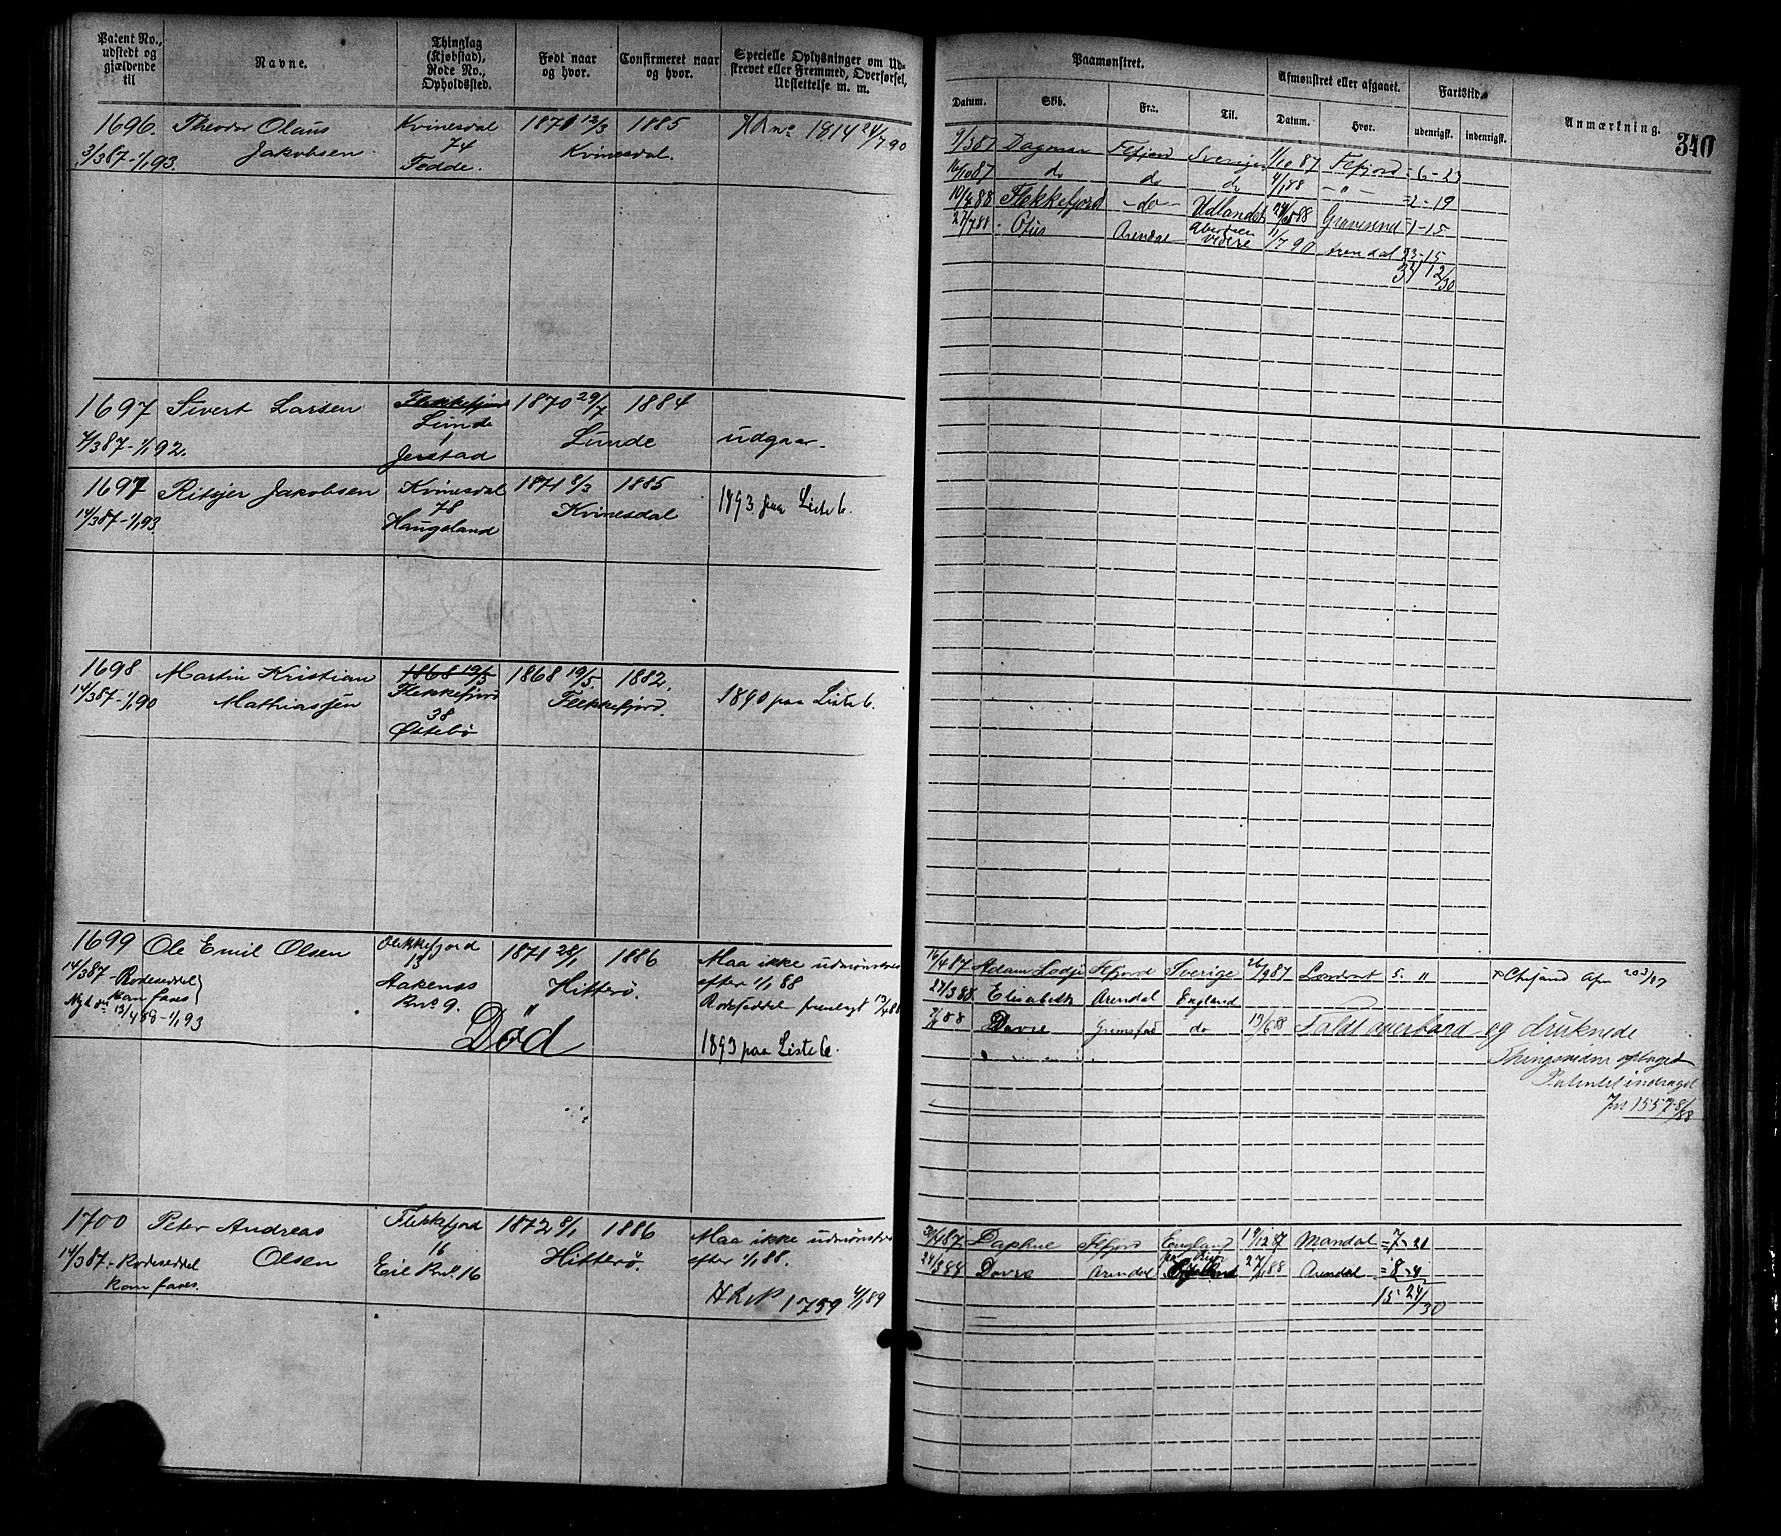 Patent No., udstedt og gjældende til
Navne.
Thinglag (Kjøbstad), Rode No., Opholdssted.
Født naar og hvor.
Confirmeret naar og hvor.
Specielle Oplysninger om Udstrevet eller Fremmed, Overførsel, Udslettelse m. m.
Paamønstret.
Afmønstret eller afgaaet.
Fartstid.
Anmærkning.
340
Datum. Skib. Fra: Til. Datum. Hvor. udenrigsk. indenrigsk.
1696. Theodor Olaus Kvinesdal 1870 12/3 1885 1814 24/7 90
3/3 87-1/1 93. Jakobsen. 74 Kvinesdal.
Fedde.
9/3 87 Dagmar Fefjord Sverige 1/10 87 Fefjord 6-23
16/10 87 do do do 4/1 88 -"- =2-19
10/4 88 Flekkefjord -do- Udlandet Gravesend =1-15
27/7 88. Otus Arendal videre 11/7 90 Arendal 23-15
34 12/30
1697 Sivert Larsen Flekkefjord 1870 29/7 1884
7/3 87-1/1 92. Lunde Lunde udgaar.
Jerstad
1697 Ritsjer Jakobsen Kvinesdal 1871 8/3 1885
14/3 87-1/1 93. 78 Kvinesdal 1893 paa Liste 6.
Haugeland
1698 Martin Kristian 1868 19/5 1868 19/5. 1882.
14/3 87-1/1 90 Mathiassen Flekkefjord Flekkefjord. 1890 paa Liste 6.
38
Østebø
1699 Ole Emil Olsen Flekkefjord 1871 28/1 1886 Maa ikke udmønstres
14/3 87-Rodeseddel 13 Hitterø. efter 1/1 88
kun faaes Aakenes Rodeseddel 13/4 88
13/4 88-1/1 93 Rno 9. Død 1893 paa Liste 6.
16/4 87 Adam Fefjord Sverige 26/9 87 5. 11
27/3 88 Elisabeth Arendal England
88 Dovre Grimstad do 13/6 88 Faldt overbord og druknede
Thingsvidne optaget
Patentet inddraget
Jno 1557 8/88
1700 Peter Andreas Flekkefjord 1872 8/1 1886 Maa ikke udmønstres
14/3 87-Rodeseddel Olsen 16 Hitterø. efter 1/1 88.
kun faaes. Eie Rno. 16
1759 4/1 89
30/4 87 Daphne Fefjord England 19/12 87 Mandal =7-21
24/3 88 Dovre Arendal 27/11 88 Arendal =8-4
15 24/30